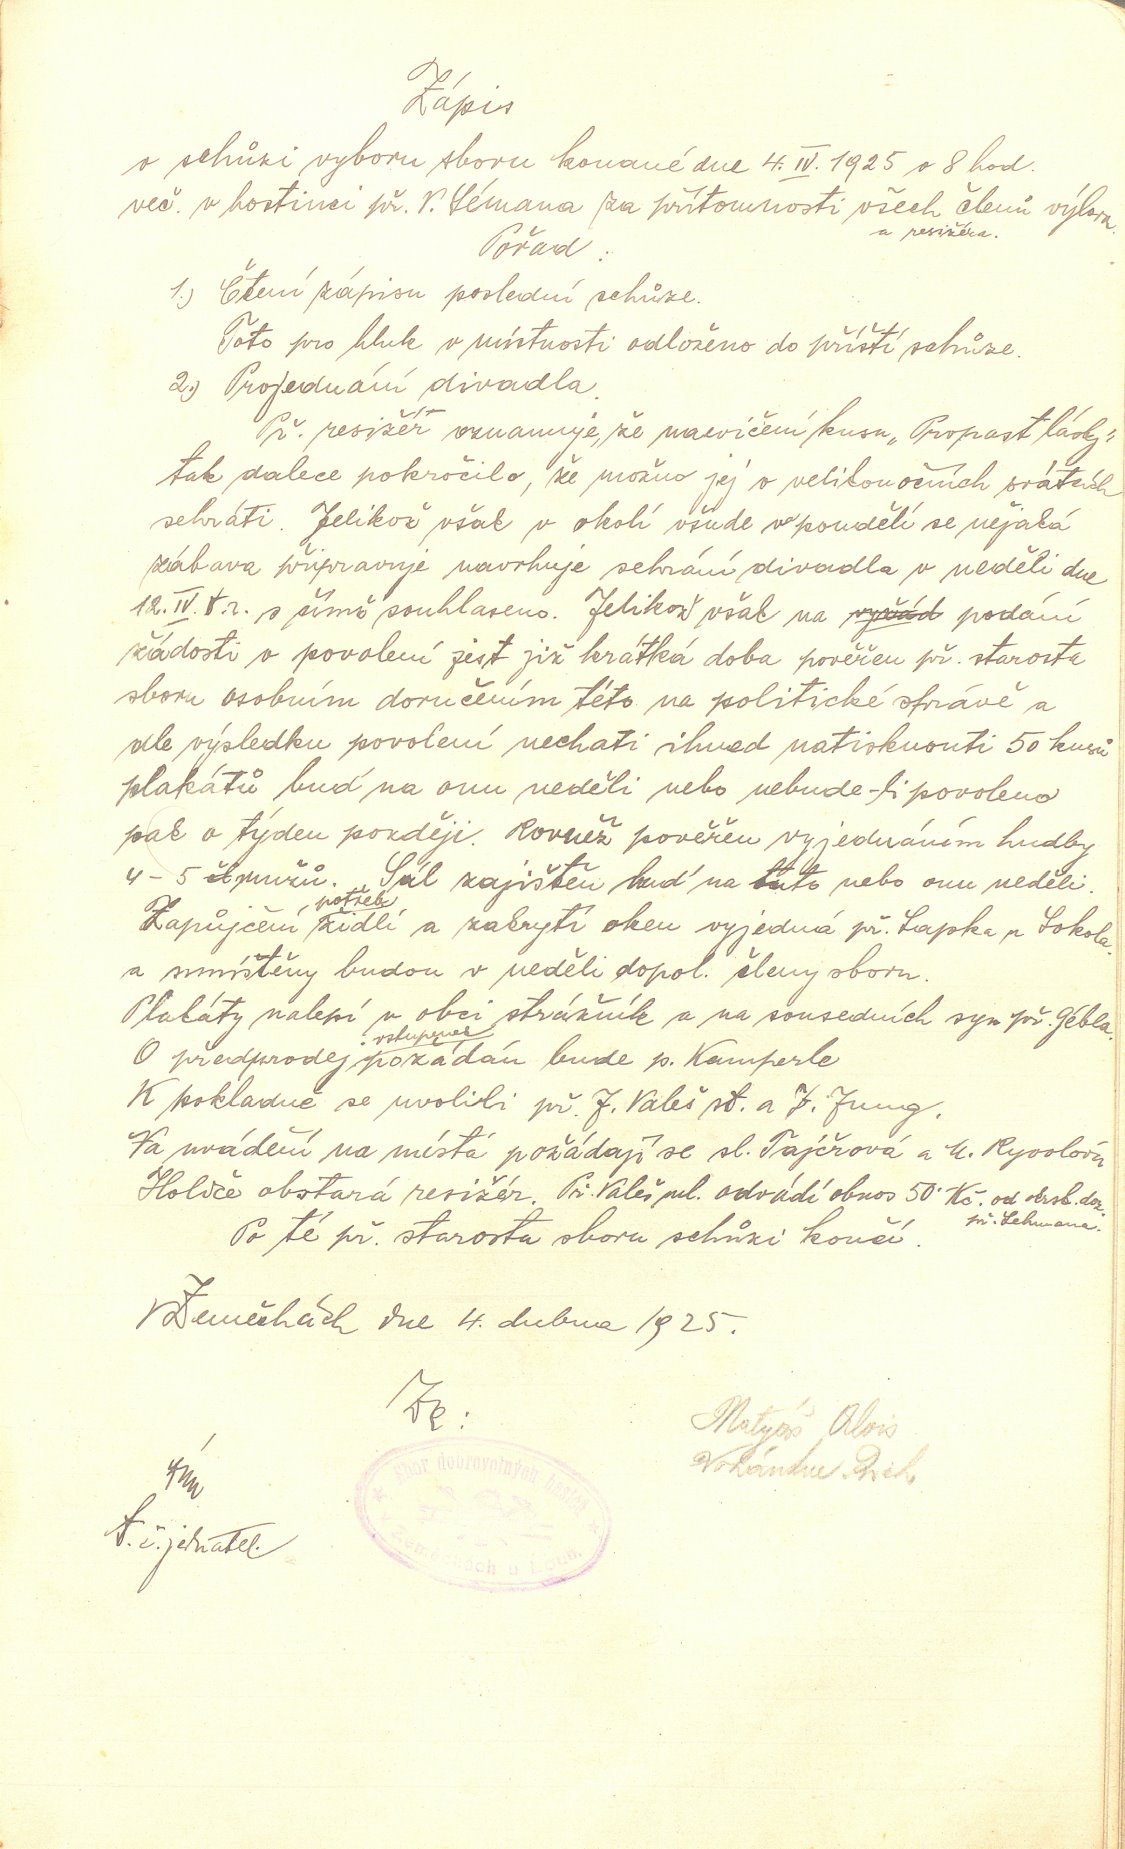 Zápis
o schůzi vyboru sboru konané dne 4. IV. 1925 o 8 hod.
več. v hostinci př. V. Zémana za přítomnosti všech členů výboru
a resižéra.
Pořad :
1.) Čtení zápisu poslední schůze.
Toto pro hluk v místnosti odloženo do příští schůze.
2.) Projednání divadla.
Př. resižér oznamuje, že nacvičení kusu „Propast lásky"
tak dalece pokročilo, že možno jej o velikonočních svátcích
sehráti. Jelikož však v okolí všude v pondělí se nějaká
zábava připravuje navrhuje sehrání divadla v neděli dne
12. IV. t. r. s čímž souhlaseno. Jelikož však na podání
žádosti o povolení jest již krátká doba pověřen př. starosta
sboru osobním doručením této na politické správě a
dle výsledku povolení nechati ihned natisknouti 50 kusů
plakátů buď na onu neděli nebo nebude-li povoleno
pak o týden později. Rovněž pověřen vyjednáním hudby
4 - 5 mužů. Sál zajištěn buď na tuto nebo onu neděli.
Zapůjčení potřeb židlí a zakrytí oken vyjedná př. Lapka u Sokola.
a umístěny budou v neděli dopol. členy sboru.
Plakáty nalepí v obci strážník a na sousedních syn př. Gébla.
O předprodej vstupenek požádán bude p. Kamperle
K pokladně se uvolili př. J. Valeš st. a J. Jung.
Na uvádění na místa požádají se sl. Tajčrová a
Holiče obstará resižér. Př. Valeš ml. odvádí obnos 50 Kč. od
př. Lehmana.
Po té př. starosta sboru schůzi končí.
V Zeměchách dne 4. dubna 1925.
Matyáš Alois
t. č. jednatel.
Sbor dobrovolných hasičů
Zeměchách u Loun.